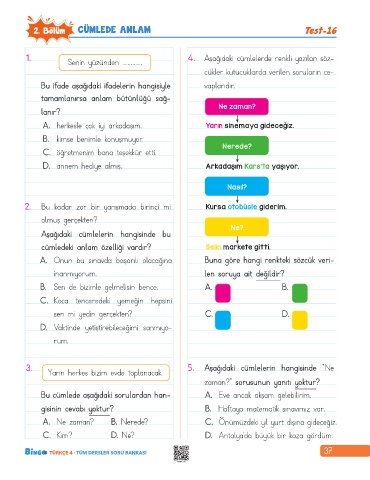 2. Bölüm CÜMLEDE ANLAM
Test-16
1. Senin yüzünden ............
Bu ifade aşağıdaki ifadelerin hangisiyle
tamamlanırsa anlam bütünlüğü sağ-
lanır?
A. herkesle çok iyi arkadaşım.
B. kimse benimle konuşmuyor.
C. öğretmenim bana teşekkür etti.
D. annem hediye almış.
2. Bu kadar zor bir yarışmada birinci mi
olmuş gerçekten?
Aşağıdaki cümlelerin hangisinde bu
cümledeki anlam özelliği vardır?
A. Onun bu sınavda başarılı olacağına
inanmıyorum.
B. Sen de bizimle gelmelisin bence.
C. Koca tenceredeki yemeğin hepsini
sen mi yedin gerçekten?
D. Vaktinde yetiştirebileceğimi sanmıyo-
rum.
3. Yarın herkes bizim evde toplanacak.
Bu cümlede aşağıdaki sorulardan han-
gisinin cevabı yoktur?
A. Ne zaman? B. Nerede?
C. Kim? D. Ne?
4. Aşağıdaki cümlelerde renkli yazılan söz-
cükler kutucuklarda verilen soruların ce-
vaplarıdır.
Ne zaman?
Yarın sinemaya gideceğiz.
Nerede?
Arkadaşım Kars'ta yaşıyor.
Nasıl?
Kursa otobüsle giderim.
Ne?
Selin markete gitti.
Buna göre hangi renkteki sözcük veri-
len soruya ait değildir?
A. B.
C. D.
5. Aşağıdaki cümlelerin hangisinde "Ne
zaman?" sorusunun yanıtı yoktur?
A. Eve ancak akşam gelebilirim.
B. Haftaya matematik sınavımız var.
C. Önümüzdeki yıl yurt dışına gideceğiz.
D. Antalya'da büyük bir kaza gördüm.
BinGO TÜRKÇE 4 - TÜM DERSLER SORU BANKASI
37